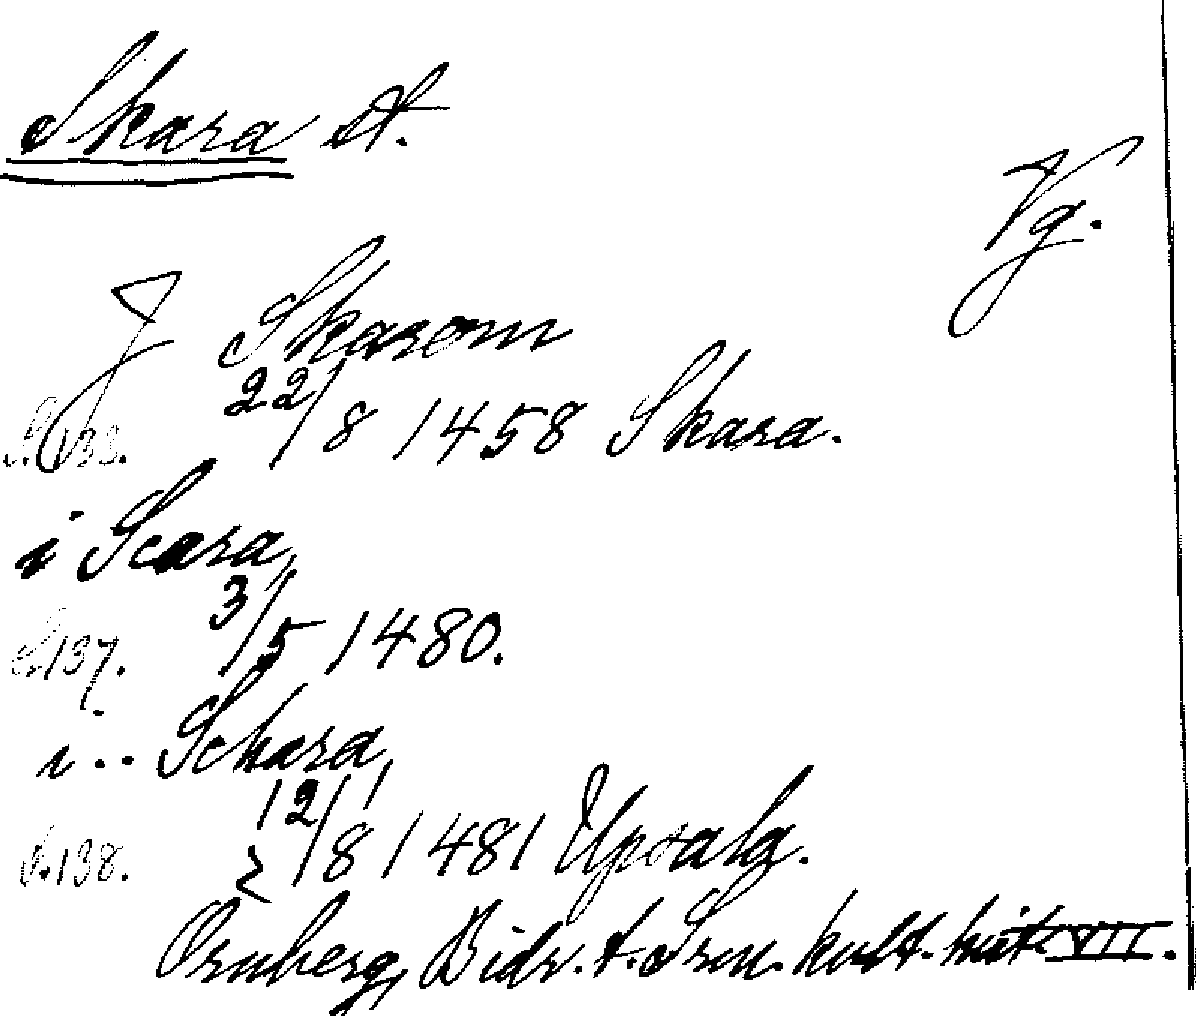 Skara st.
Vg.
J Skarom
22/8 1458 Skara.
S. 133.
i Scara,
3/5 1480.
S. 137.
i .. Schara,
12/8 1481 Upsala.
S. 138.
Ornberg, Bidr. t. Sven. kult. hist. VII.